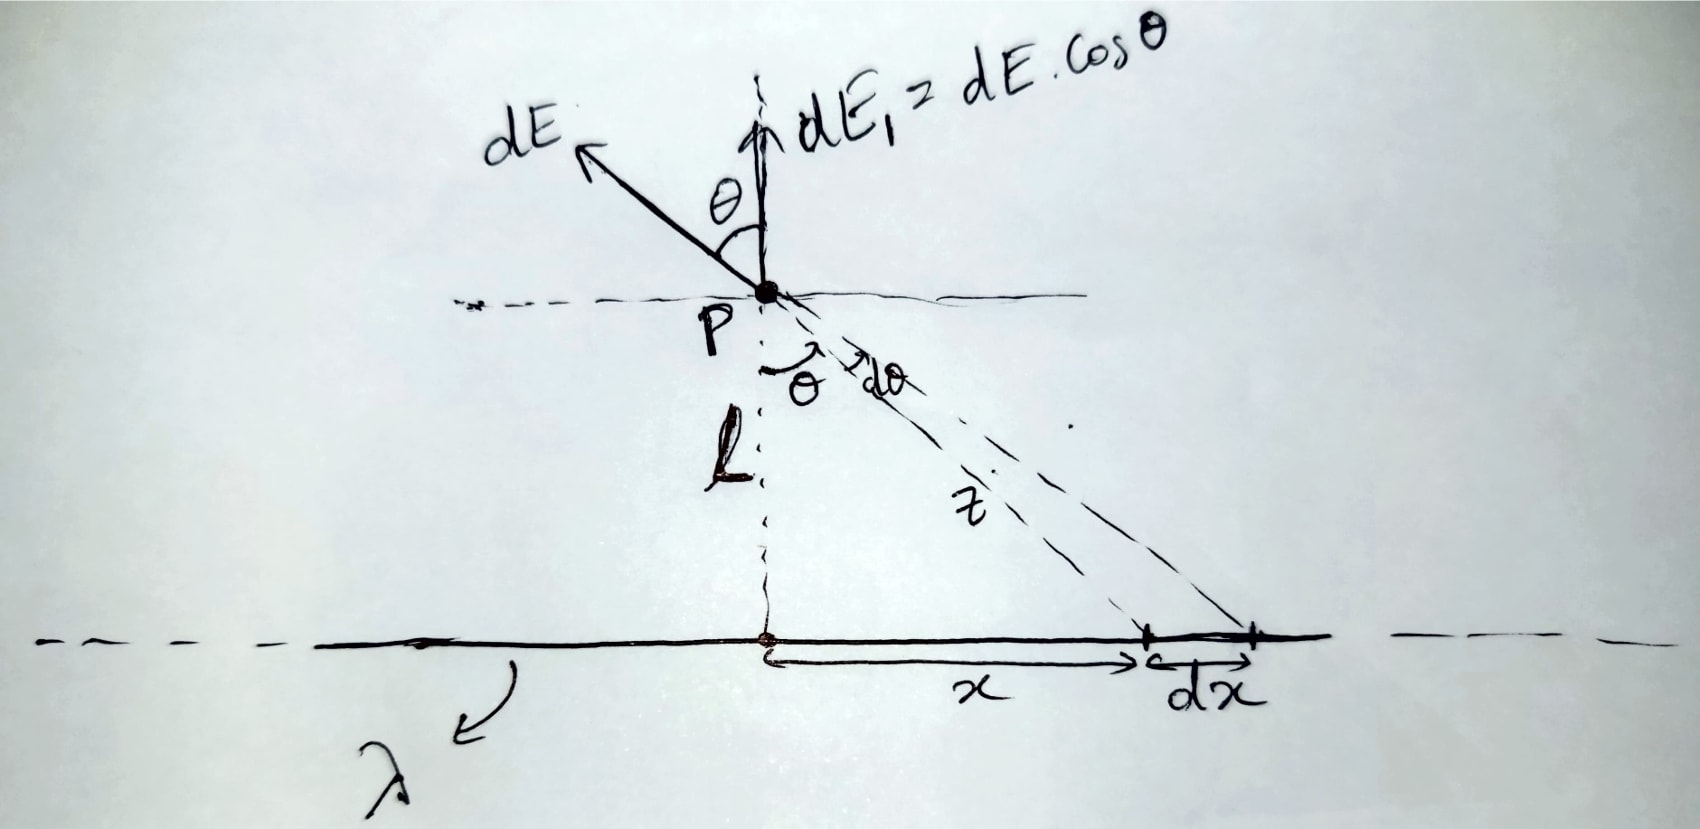 dE
dE₁ = dE . cos θ
θ
P
θ
dθ
L
z
x
dx
λ